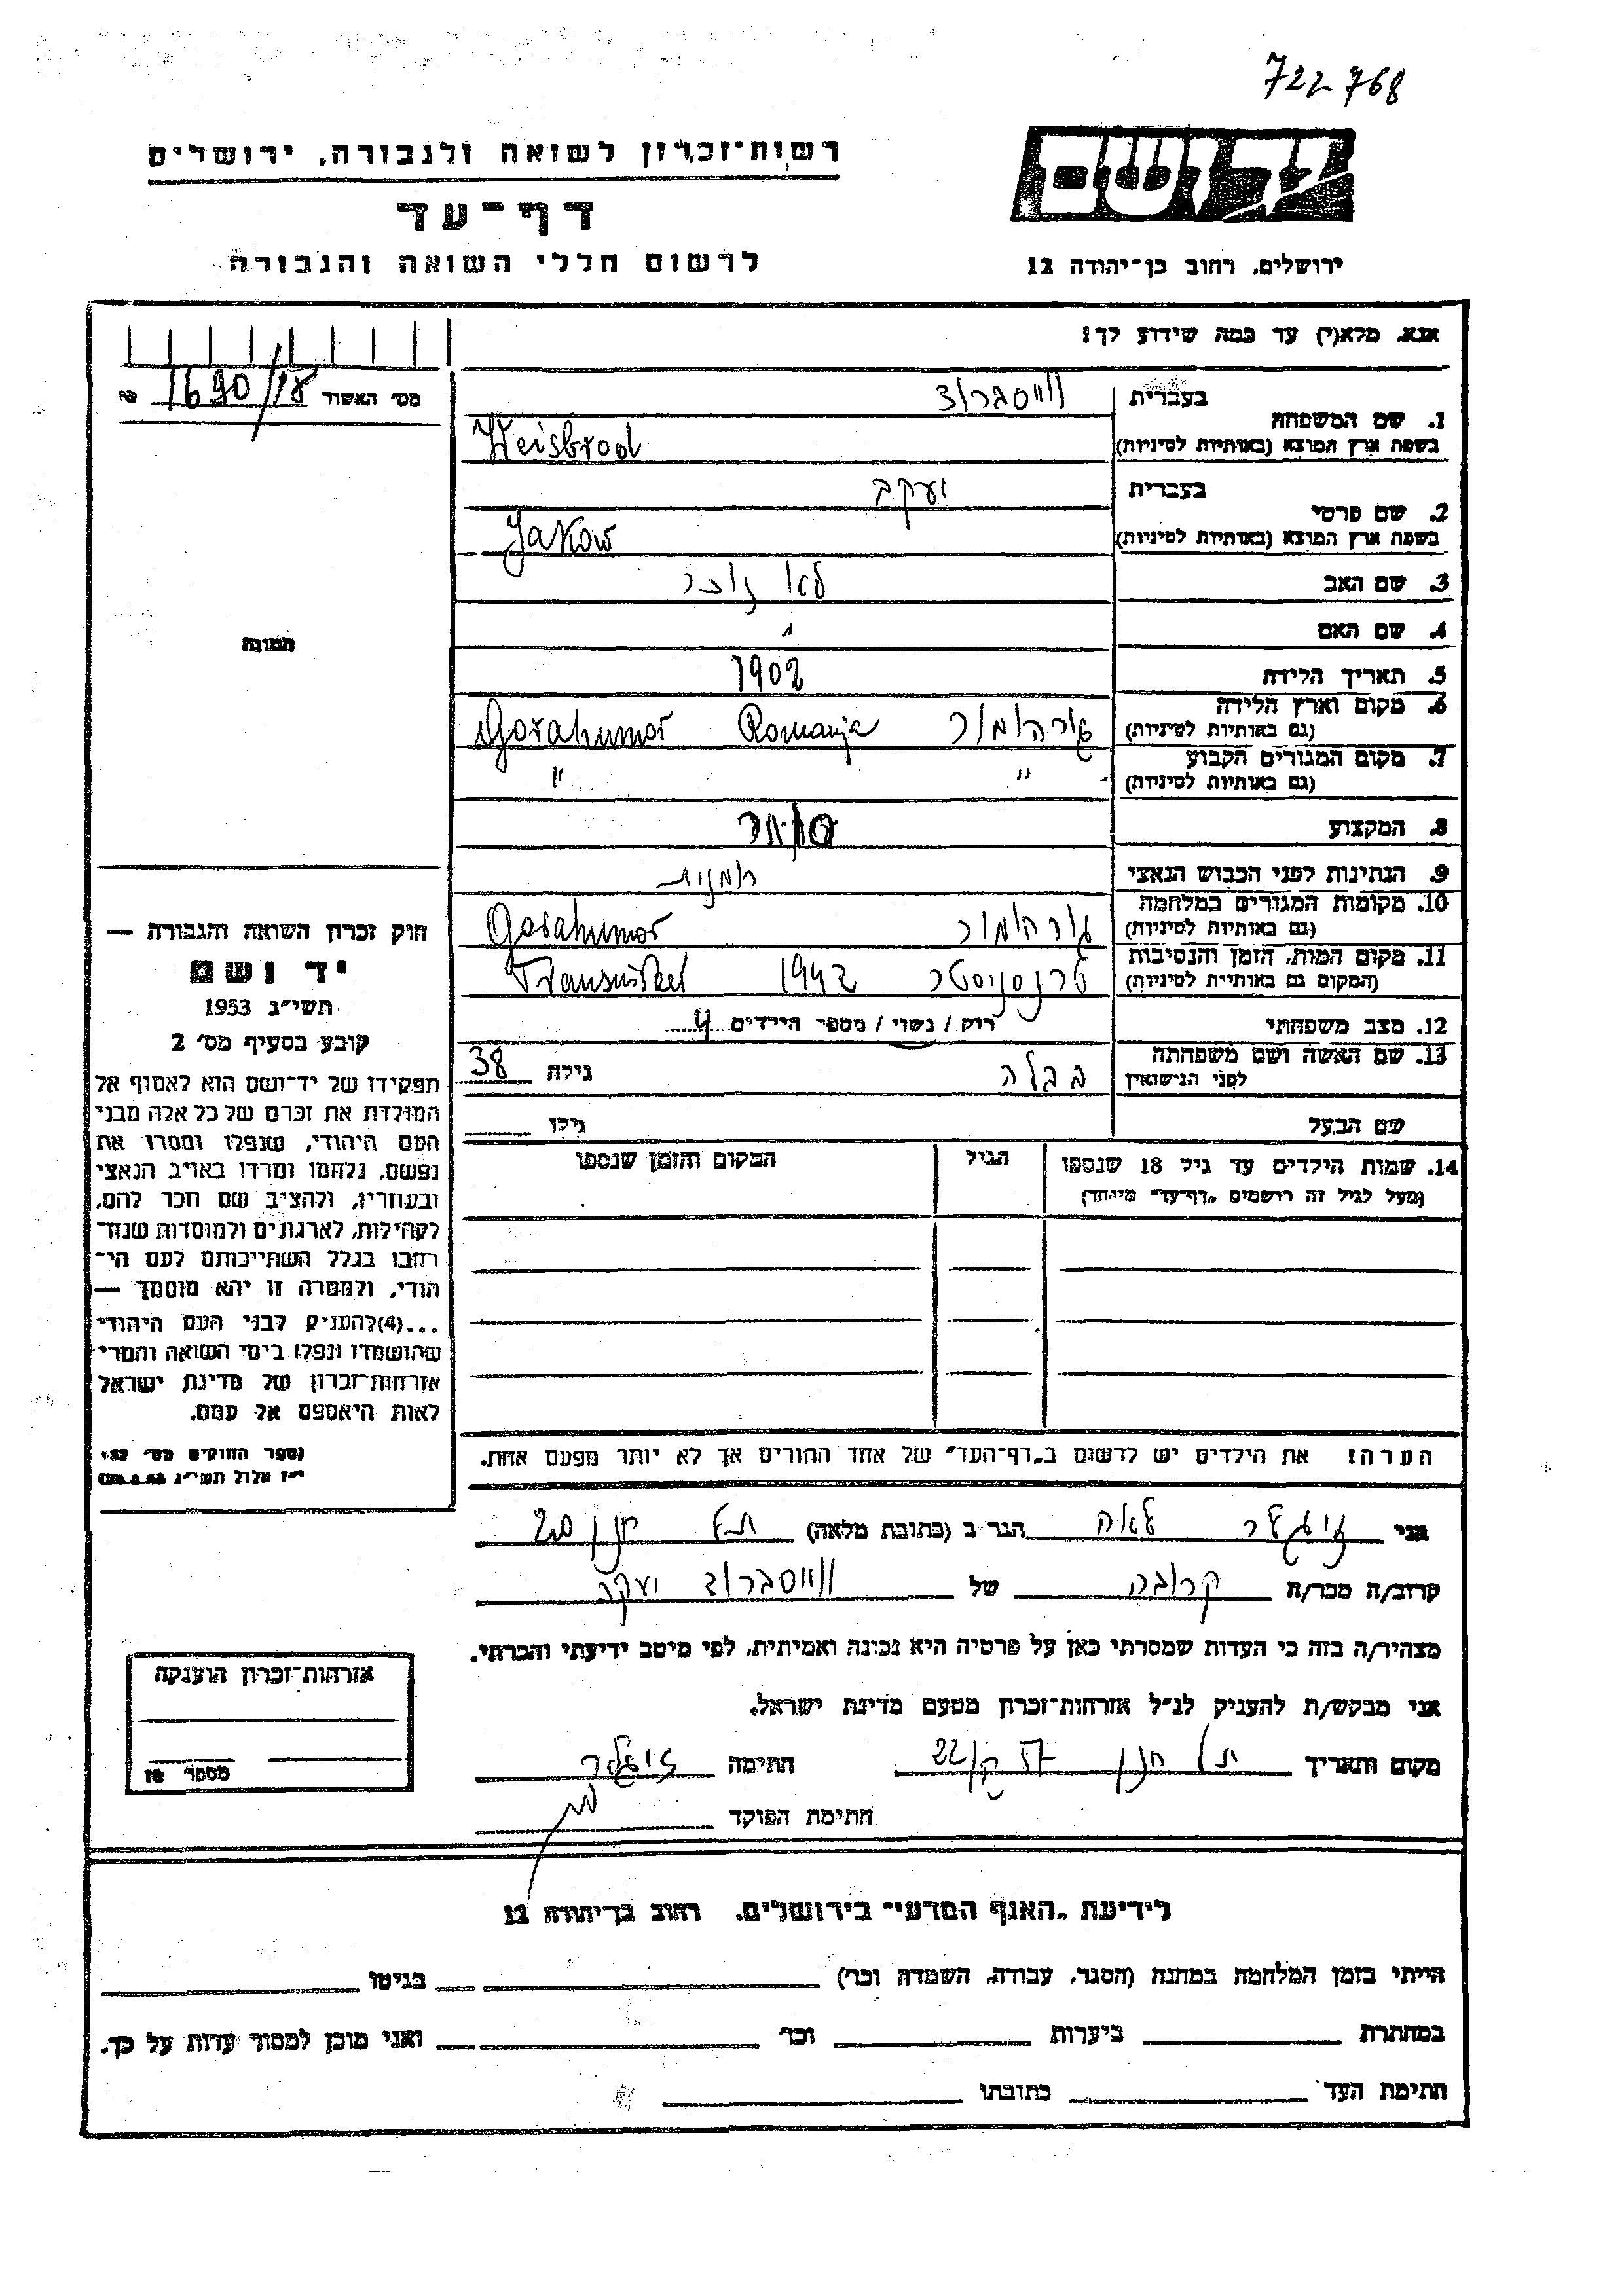 722768
רשות־זכרון לשואה ולגבורה, ירושלים
דף־עד
לרשום חללי השואה והגבורה
יד ושם
ירושלים, רחוב בן־יהודה 12
אנא, מלא(י) עד כמה שידוע לך!
מס׳ האשור 1690/18
1. שם המשפחה בעברית ווייסברוד
בשפת ארץ המוצא (באותיות לטיניות) Weisbrod
2. שם פרטי בעברית יעקב
בשפת ארץ המוצא (באותיות לטיניות) Jakow
3. שם האב לא זוכר
4. שם האם "
5. תאריך הלידה 1902
6. מקום וארץ הלידה (גם באותיות לטיניות) גורהומור Romanja Gorahumor
7. מקום המגורים הקבוע (גם באותיות לטיניות) " "
8. המקצוע סוחר
9. הנתינות לפני הכבוש הנאצי רומנית
10. מקומות המגורים במלחמה (גם באותיות לטיניות) גורהומור Gorahumor
11. מקום המות, הזמן והנסיבות (המקום גם באותיות לטיניות) טרנסניסטר 1942 Transnistel
12. מצב משפחתי רוק / נשוי / מספר הילדים 4
13. שם האשה ושם משפחתה לפני הנישואין גילה 38
שם הבעל גילו
14. שמות הילדים עד גיל 18 שנספו (מעל לגיל זה רושמים „דף־עד״ מיוחד) הגיל המקום והזמן שנספו
הערה! את הילדים יש לרשום ב„דף־העד״ של אחד ההורים אך לא יותר מפעם אחת.
תמונה
חוק זכרון השואה והגבורה —
יד ושם
תשי״ג 1953
קובע בסעיף מס׳ 2
תפקידו של יד־ושם הוא לאסוף אל
המולדת את זכרם של כל אלה מבני
העם היהודי, שנפלו ומסרו את
נפשם, נלחמו ומרדו באויב הנאצי
ובעוזריו, ולהציב שם וזכר להם,
לקהילות, לארגונים ולמוסדות שנח־
רבו בגלל השתייכותם לעם הי־
הודי, ולמטרה זו יהא מוסמך —
...(4) להעניק לבני העם היהודי
שהושמדו ונפלו בימי השואה והמרי
אזרחות־זכרון של מדינת ישראל
לאות היאספם אל עמם.
(ספר החוקים מס׳ 132
י״ז אלול תשי״ג 28.8.53)
אני זיגלר לאה הגר ב (כתובת מלאה) תל חנן 200
קרוב/ה מכר/ה קרובה של ווייסברוד יעקב
מצהיר/ה בזה כי העדות שמסרתי כאן על פרטיה היא נכונה ואמיתית, לפי מיטב ידיעתי והכרתי.
אני מבקש/ת להעניק לנ״ל אזרחות־זכרון מטעם מדינת ישראל.
מקום ותאריך תל חנן חתימה זיגלר
חתימת הפוקד
אזרחות־זכרון הוענקה
מספר
לידיעת „האגף המדעי״ בירושלים, רחוב בן־יהודה 12
הייתי בזמן המלחמה במחנה (הסגר, עבודה, השמדה וכר׳) בגיטו
במחתרת ביערות וכר׳ ואני מוכן למסור עדות על כך.
חתימת העד כתובתו